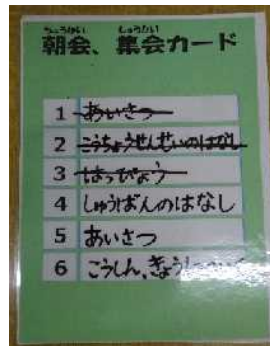 ちょうかい しゅうかい
朝会、集会カード
1 あいさつ
2 こうちょうせんせいのはなし
3 はっぴょう
4 しゅうばんのはなし
5 あいさつ
6 こうしん、きょうしつへ